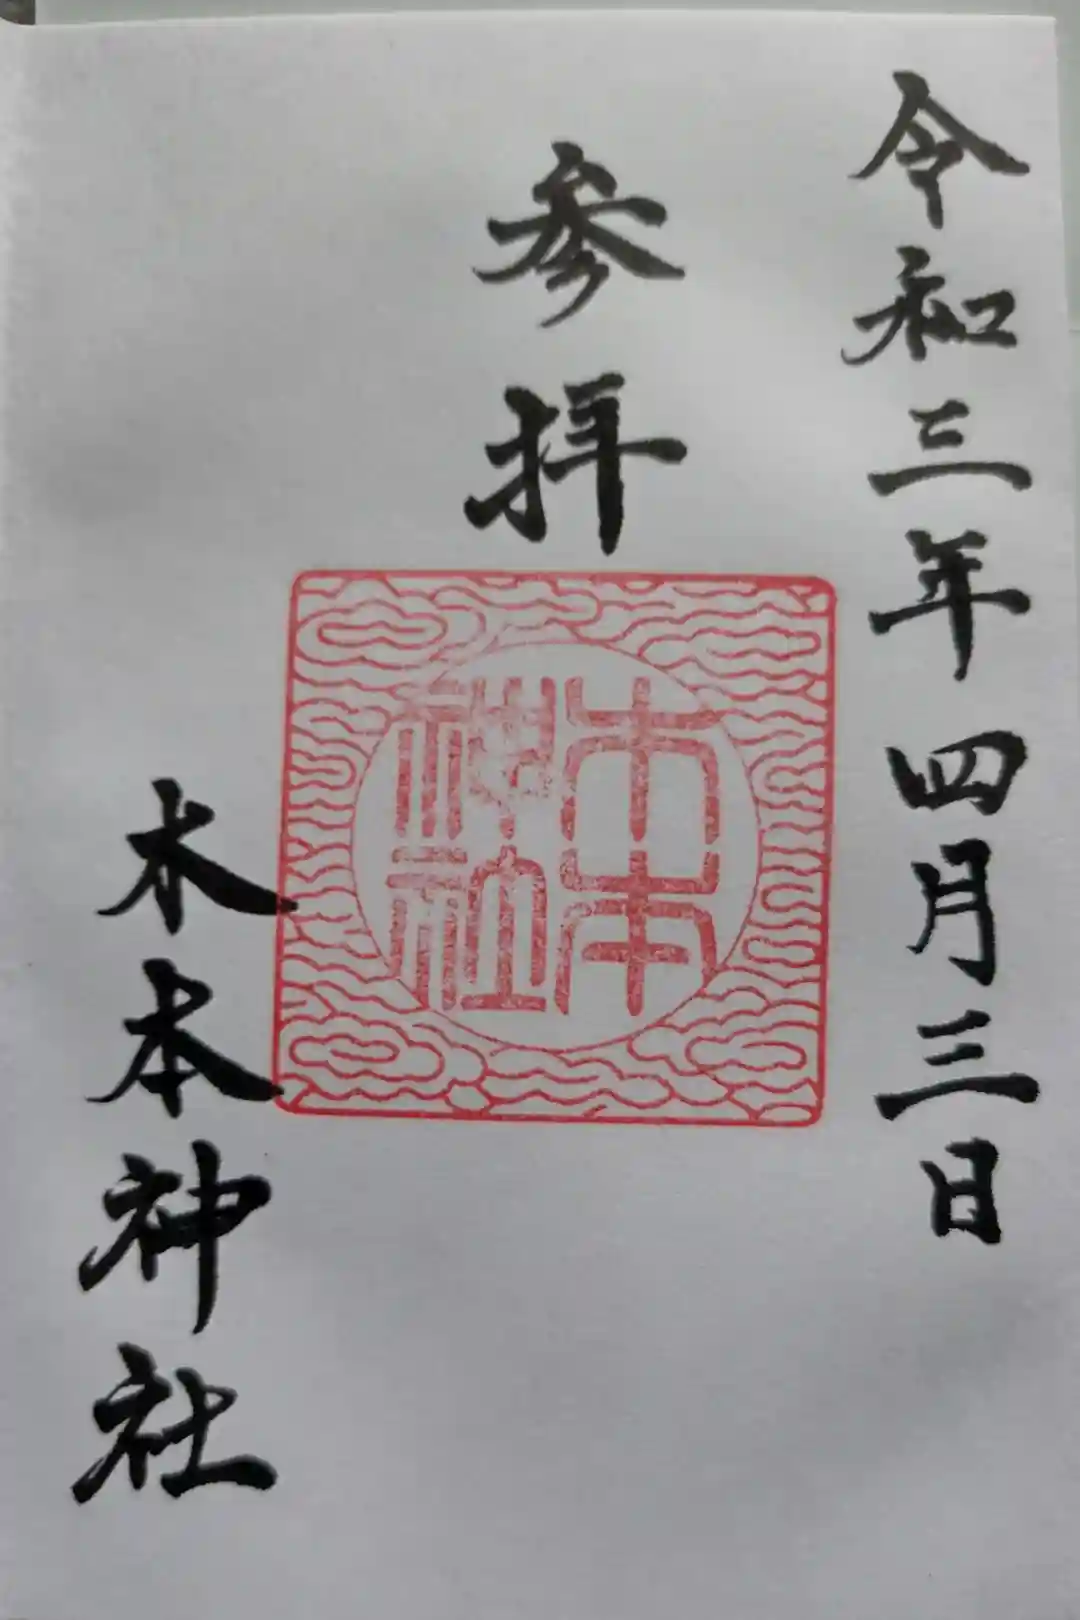 令和三年四月三日
参拝
木本
神社
木本神社